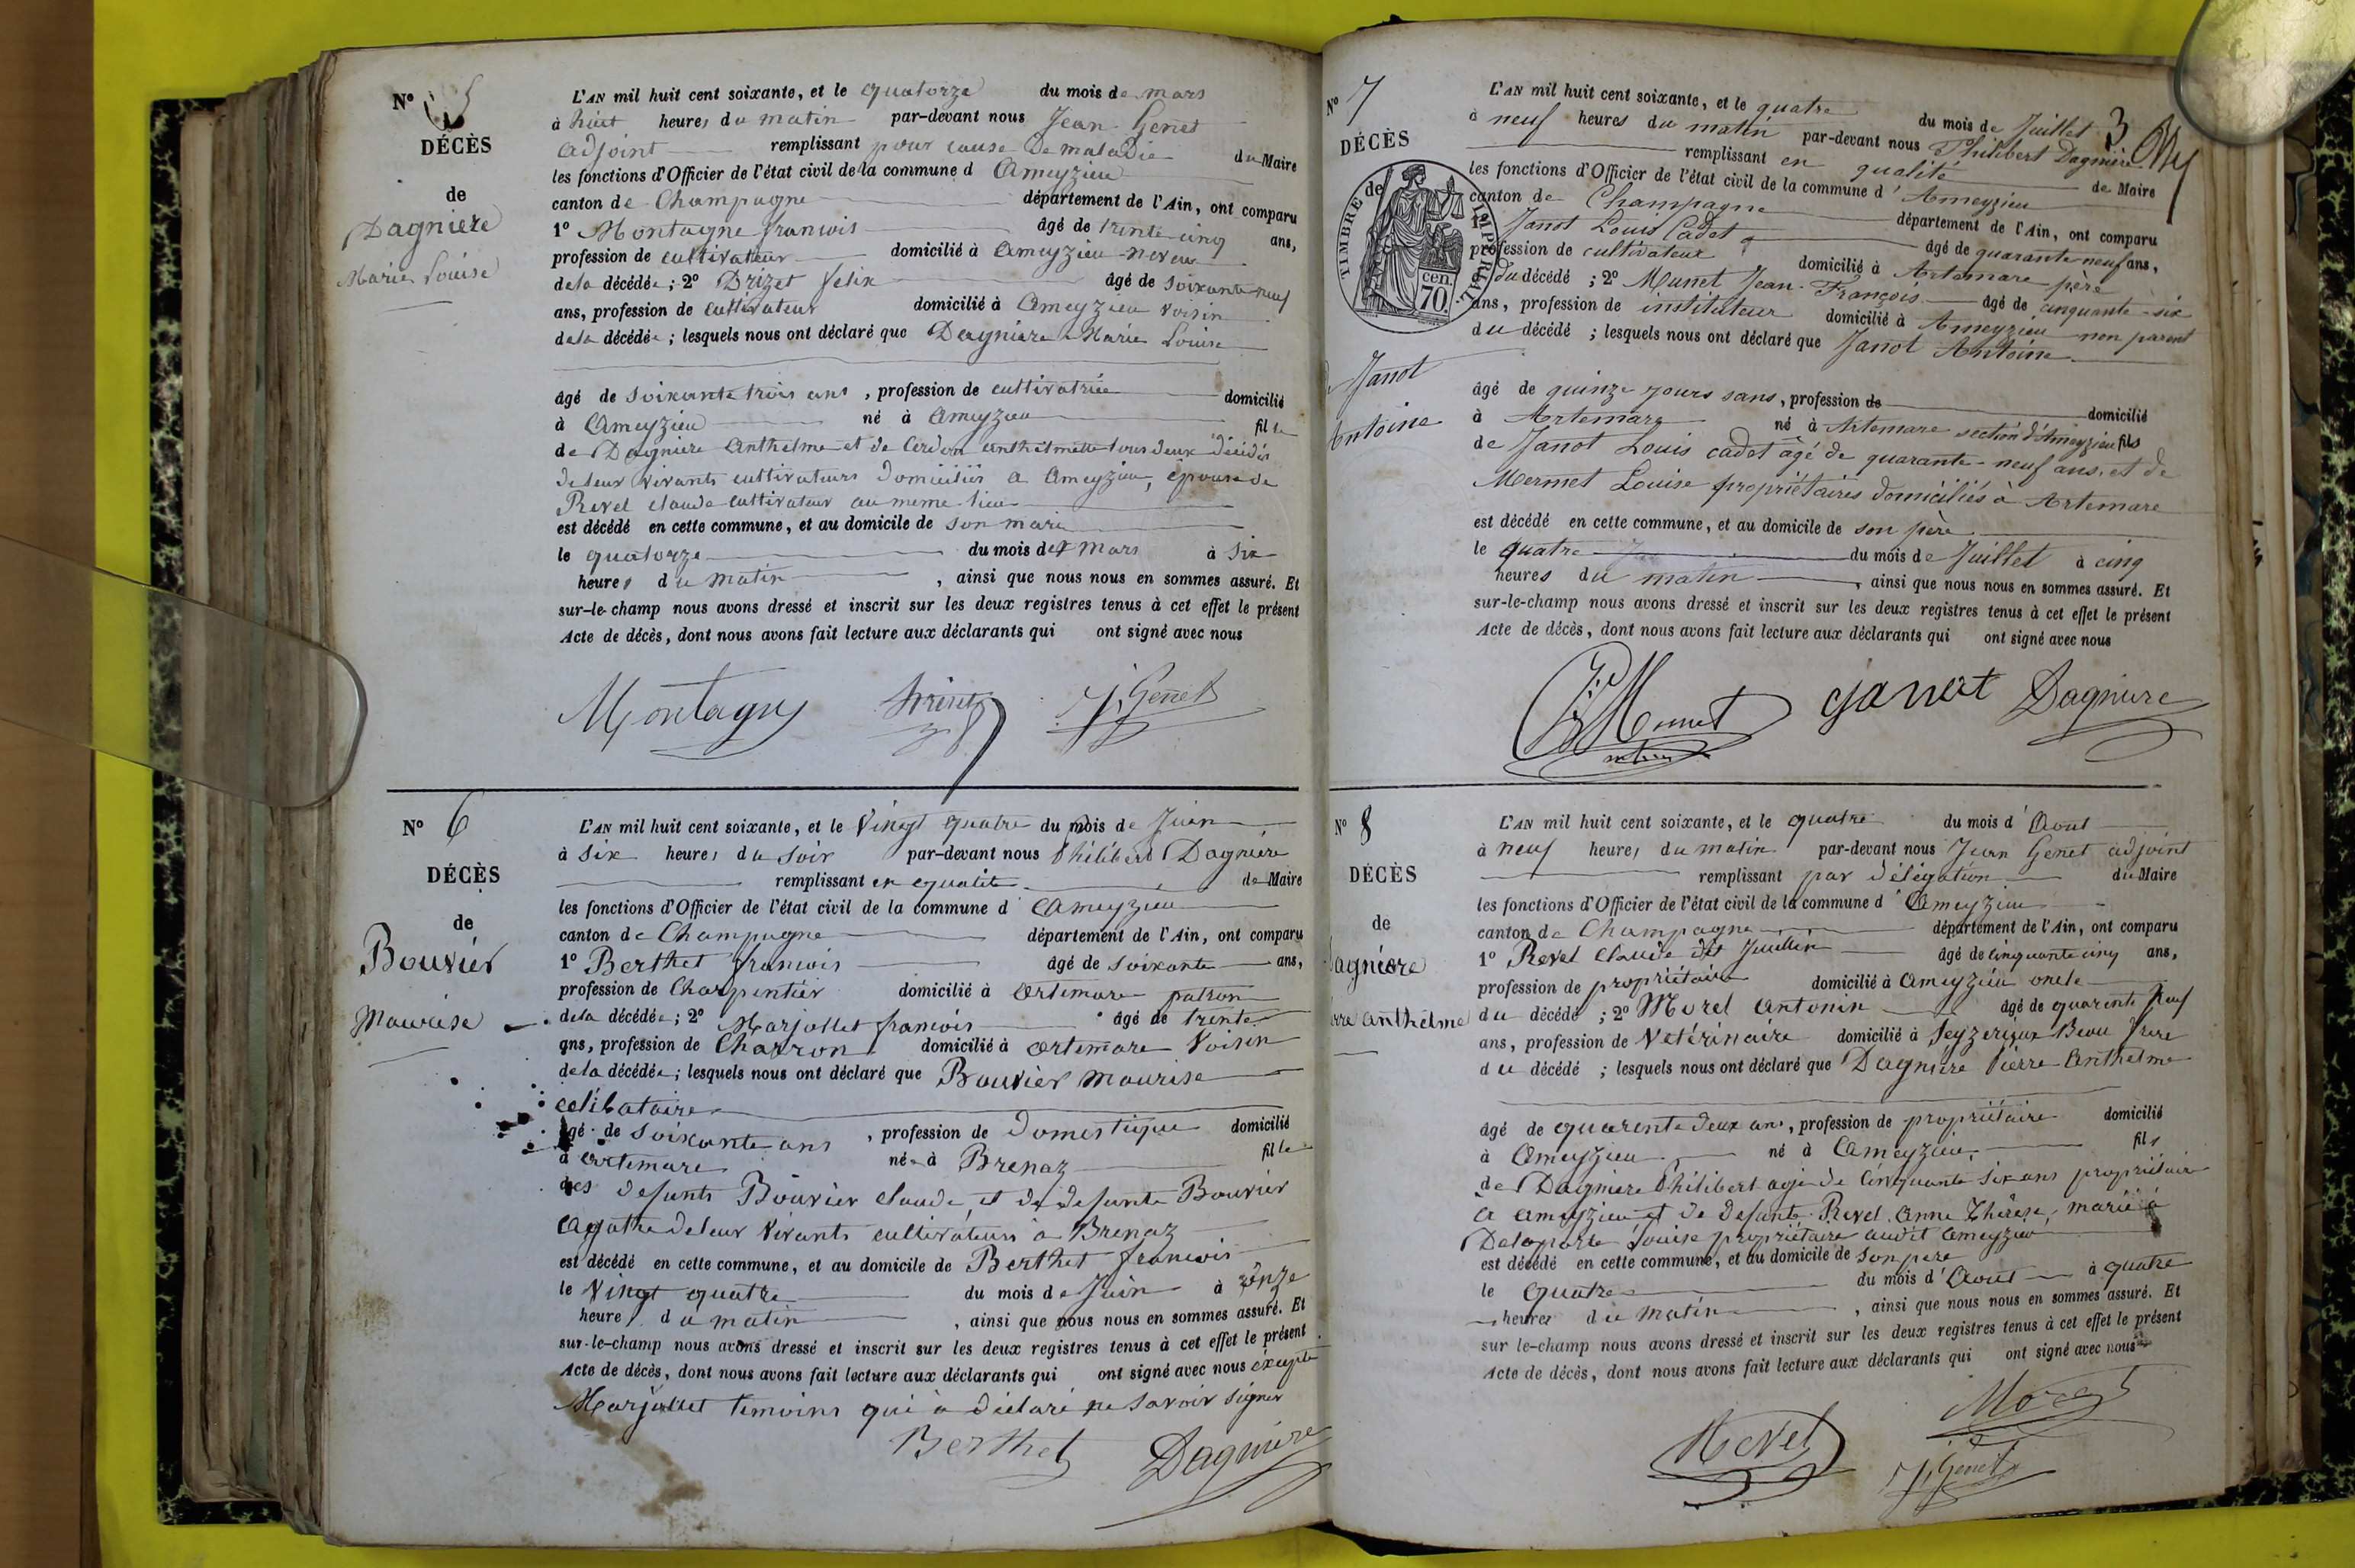 N° 5
DÉCÈS
de
Dagniere
Marie Louise
L'AN mil huit cent soixante, et le quatorze du mois de mars
à huit heures du matin par-devant nous Jean Genet
adjoint remplissant pour cause de maladie du Maire
les fonctions d'Officier de l'état civil de la commune d Ameyzieu
canton de Champagne département de l'Ain, ont comparu
1° Montagne francois âgé de trente cinq ans,
profession de cultivateur domicilié à Ameyzieu neveu
de la décédée; 2° Brizet felix âgé de soixante neuf
ans, profession de cultivateur domicilié à Ameyzieu voisin
de la décédée; lesquels nous ont déclaré que Dagniere Marie Louise
âgé de soixante trois ans, profession de cultivatrice domicilié
à Ameyzieu né à Ameyzieu fille
de Dagniere Anthelme et de Cerdon anthelmette tous deux décédés
de leur vivants cultivateurs domiciliés a Ameyzieu, épouse de
Revel claude cultivateur au meme lieu
est décédé en cette commune, et au domicile de son mari
le quatorze du mois de mars à six
heures du matin, ainsi que nous nous en sommes assuré. Et
sur-le-champ nous avons dressé et inscrit sur les deux registres tenus à cet effet le présent
Acte de décès, dont nous avons fait lecture aux déclarants qui ont signé avec nous
Montagny J. Genet
N° 6
DÉCÈS
de
Bouvier
Maurise
L'AN mil huit cent soixante, et le Vingt quatre du mois de Juin
à six heures du soir par-devant nous Philibert Dagniere
remplissant en qualité de Maire
les fonctions d'Officier de l'état civil de la commune d Ameyzieu
canton de Champagne département de l'Ain, ont comparu
1° Berthet francois âgé de soixante ans,
profession de Charpentier domicilié à Artemare patron
de la décédée; 2° Marjollet francois âgé de trente
ans, profession de Charron domicilié à artemare Voisin
de la décédée; lesquels nous ont déclaré que Bouvier Maurise
celibataire
âgé de soixante ans, profession de Domestique domicilié
à artemare née à Brenaz fille
des defunts Bouvier claude, et de defunte Bouvier
Agathe de leur vivants cultivateurs a Brenaz
est décédé en cette commune, et au domicile de Berthet francois
le Vingt quatre du mois de Juin à onze
heures du matin, ainsi que nous nous en sommes assuré. Et
sur-le-champ nous avons dressé et inscrit sur les deux registres tenus à cet effet le présent
Acte de décès, dont nous avons fait lecture aux déclarants qui ont signé avec nous excepté
Marjollet temoins qui a déclaré ne savoir signer
Berthet Dagniere
N° 7
DÉCÈS
de
TIMBRE IMPERIAL
70 cen.
Janot
Antoine
L'AN mil huit cent soixante, et le quatre du mois de Juillet 3
à neuf heures du matin par-devant nous Philibert Dagniere
remplissant en qualité de Maire
les fonctions d'Officier de l'état civil de la commune d'Ameyzieu
canton de Champagne département de l'Ain, ont comparu
1° Janot Louis Cadet âgé de quarante neuf ans,
profession de cultivateur domicilié à Artemare père
du décédé; 2° Mumet Jean-François âgé de cinquante-six
ans, profession de instituteur domicilié à Ameyzieu non parent
du décédé; lesquels nous ont déclaré que Janot Antoine
âgé de quinze jours sans, profession de domicilié
à Artemare né à Artemare section d'Ameyzieu fils
de Janot Louis cadet âgé de quarante-neuf ans, et de
Mermet Louise propriétaires domiciliés à Artemare
est décédé en cette commune, et au domicile de son père
le quatre du mois de Juillet à cinq
heures du matin, ainsi que nous nous en sommes assuré. Et
sur-le-champ nous avons dressé et inscrit sur les deux registres tenus à cet effet le présent
Acte de décès, dont nous avons fait lecture aux déclarants qui ont signé avec nous
Janot Dagniere
N° 8
DÉCÈS
de
Dagniere
Anthelme
L'AN mil huit cent soixante, et le quatre du mois d'Aout
à neuf heures du matin par-devant nous Jean Genet adjoint
remplissant par délégation du Maire
les fonctions d'Officier de l'état civil de la commune d'Ameyzieu
canton de Champagne département de l'Ain, ont comparu
1° Revel Claude dit Juillin âgé de cinquante cinq ans,
profession de propriétaire domicilié à Ameyzieu oncle
du décédé; 2° Morel Antonin âgé de quarente neuf
ans, profession de Vetérinaire domicilié à Seyzerieux Beau frere
du décédé; lesquels nous ont déclaré que Dagniere Pierre Anthelme
âgé de quarente deux ans, profession de propriétaire domicilié
à Ameyzieu né à Ameyzieu fils
de Dagniere Philibert agé de Cinquante six ans propriétaire
à Ameyzieu et de defunte Revel Anne Thérèse, marié à
Delaporte Louise propriétaire audit Ameyzieu
est décédé en cette commune, et au domicile de son pere
le quatre du mois d'Aout à quatre
heures du matin, ainsi que nous nous en sommes assuré. Et
sur le-champ nous avons dressé et inscrit sur les deux registres tenus à cet effet le présent
Acte de décès, dont nous avons fait lecture aux déclarants qui ont signé avec nous
Morel
Revel
J. Genet